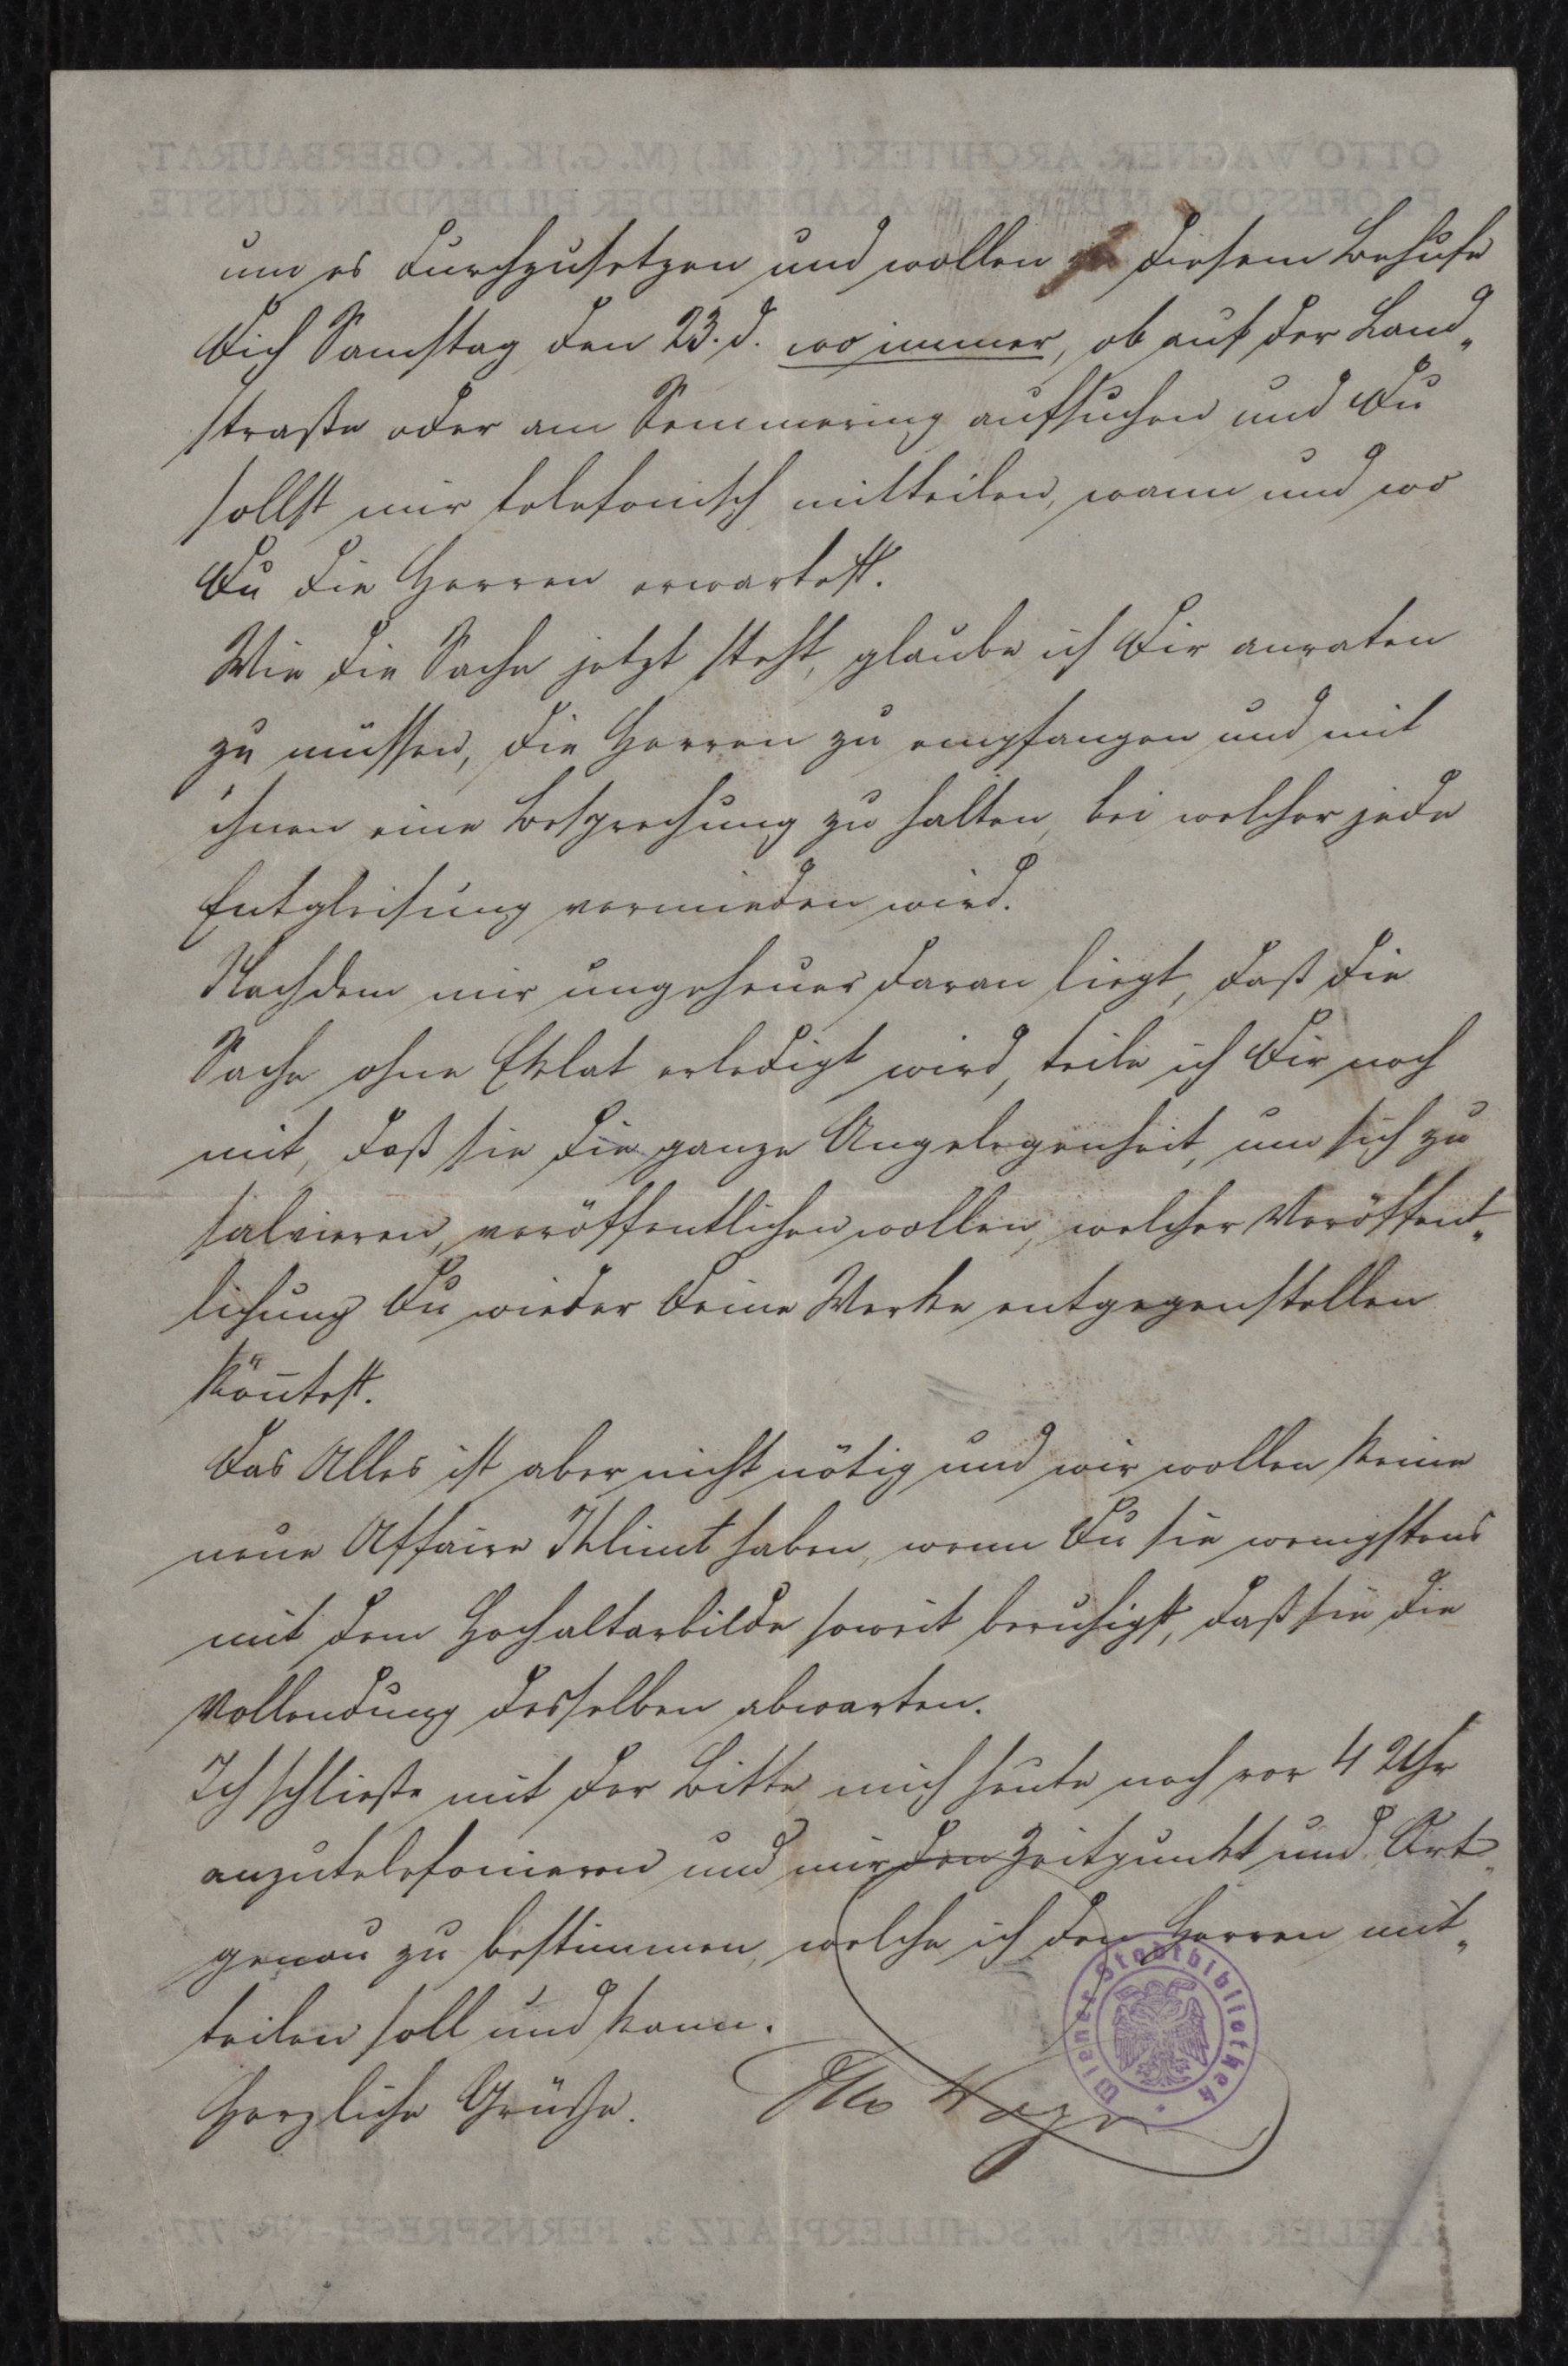 um es durchzusetzen und wollen zu diesem Behufe
Dich Samstag den 23. d. wo immer, ob auf der Land„
straße oder am Semmering aufsuchen und Du
sollst mir telefonisch mitteilen, wann und wo
Du die Herren erwartest.
Wie die Sache jetzt steht, glaube ich Dir anraten
zu müssen, die Herren zu empfangen und mit
ihnen eine Besprechung zu halten, bei welcher jede
Entgleisung vermieden wird.
Nachdem mir ungeheuer daran liegt, daß die
Sache ohne Eklat erledigt wird, teile ich Dir noch
mit, daß sie die ganze Angelegenheit, um sich zu
salvieren, veröffentlichen wollen, welcher Veröffent„
lichung Du wieder Deine Werke entgegenstellen
kön̄test.
Das Alles ist aber nicht nötig und wir wollen keine
neue Affaire Klimt haben, wenn Du sie wenigstens
mit dem Hochaltarbilde soweit beruhigst, daß sie die
Vollendung desselben abwarten.
Ich schließe mit der Bitte mich heute noch vor 4 Uhr
anzutelefonieren und mir den Zeitpunkt und Ort
genau zu bestimmen, welche ich den Herren mit„
teilen soll und kann.
Herzliche Grüße. Otto Wagner
Wiener Stadtbibliothek
OTTO WAGNER. ARCHITEKT (C. M.) (M. G.) K. K. OBERBAURAT,
PROFESSOR AN DER K. K. AKADEMIE DER BILDENDEN KÜNSTE.
ATELIER: WIEN, I., SCHILLERPLATZ 3. FERNSPRECH-NR.